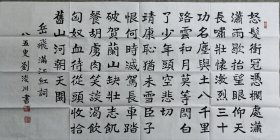 怒髮衝冠憑欄處瀟
瀟雨歇抬望眼仰天
長嘯壯懷激烈三十
功名塵與土八千里
路雲和月莫等閑白
了少年頭空悲切
靖康恥猶未雪臣子
恨何時滅駕長車踏
破賀蘭山缺壯志飢
餐胡虜肉笑談渴飲
匈奴血待從頭收拾
舊山河朝天闕
岳飛滿江紅詞
八五叟劉川書